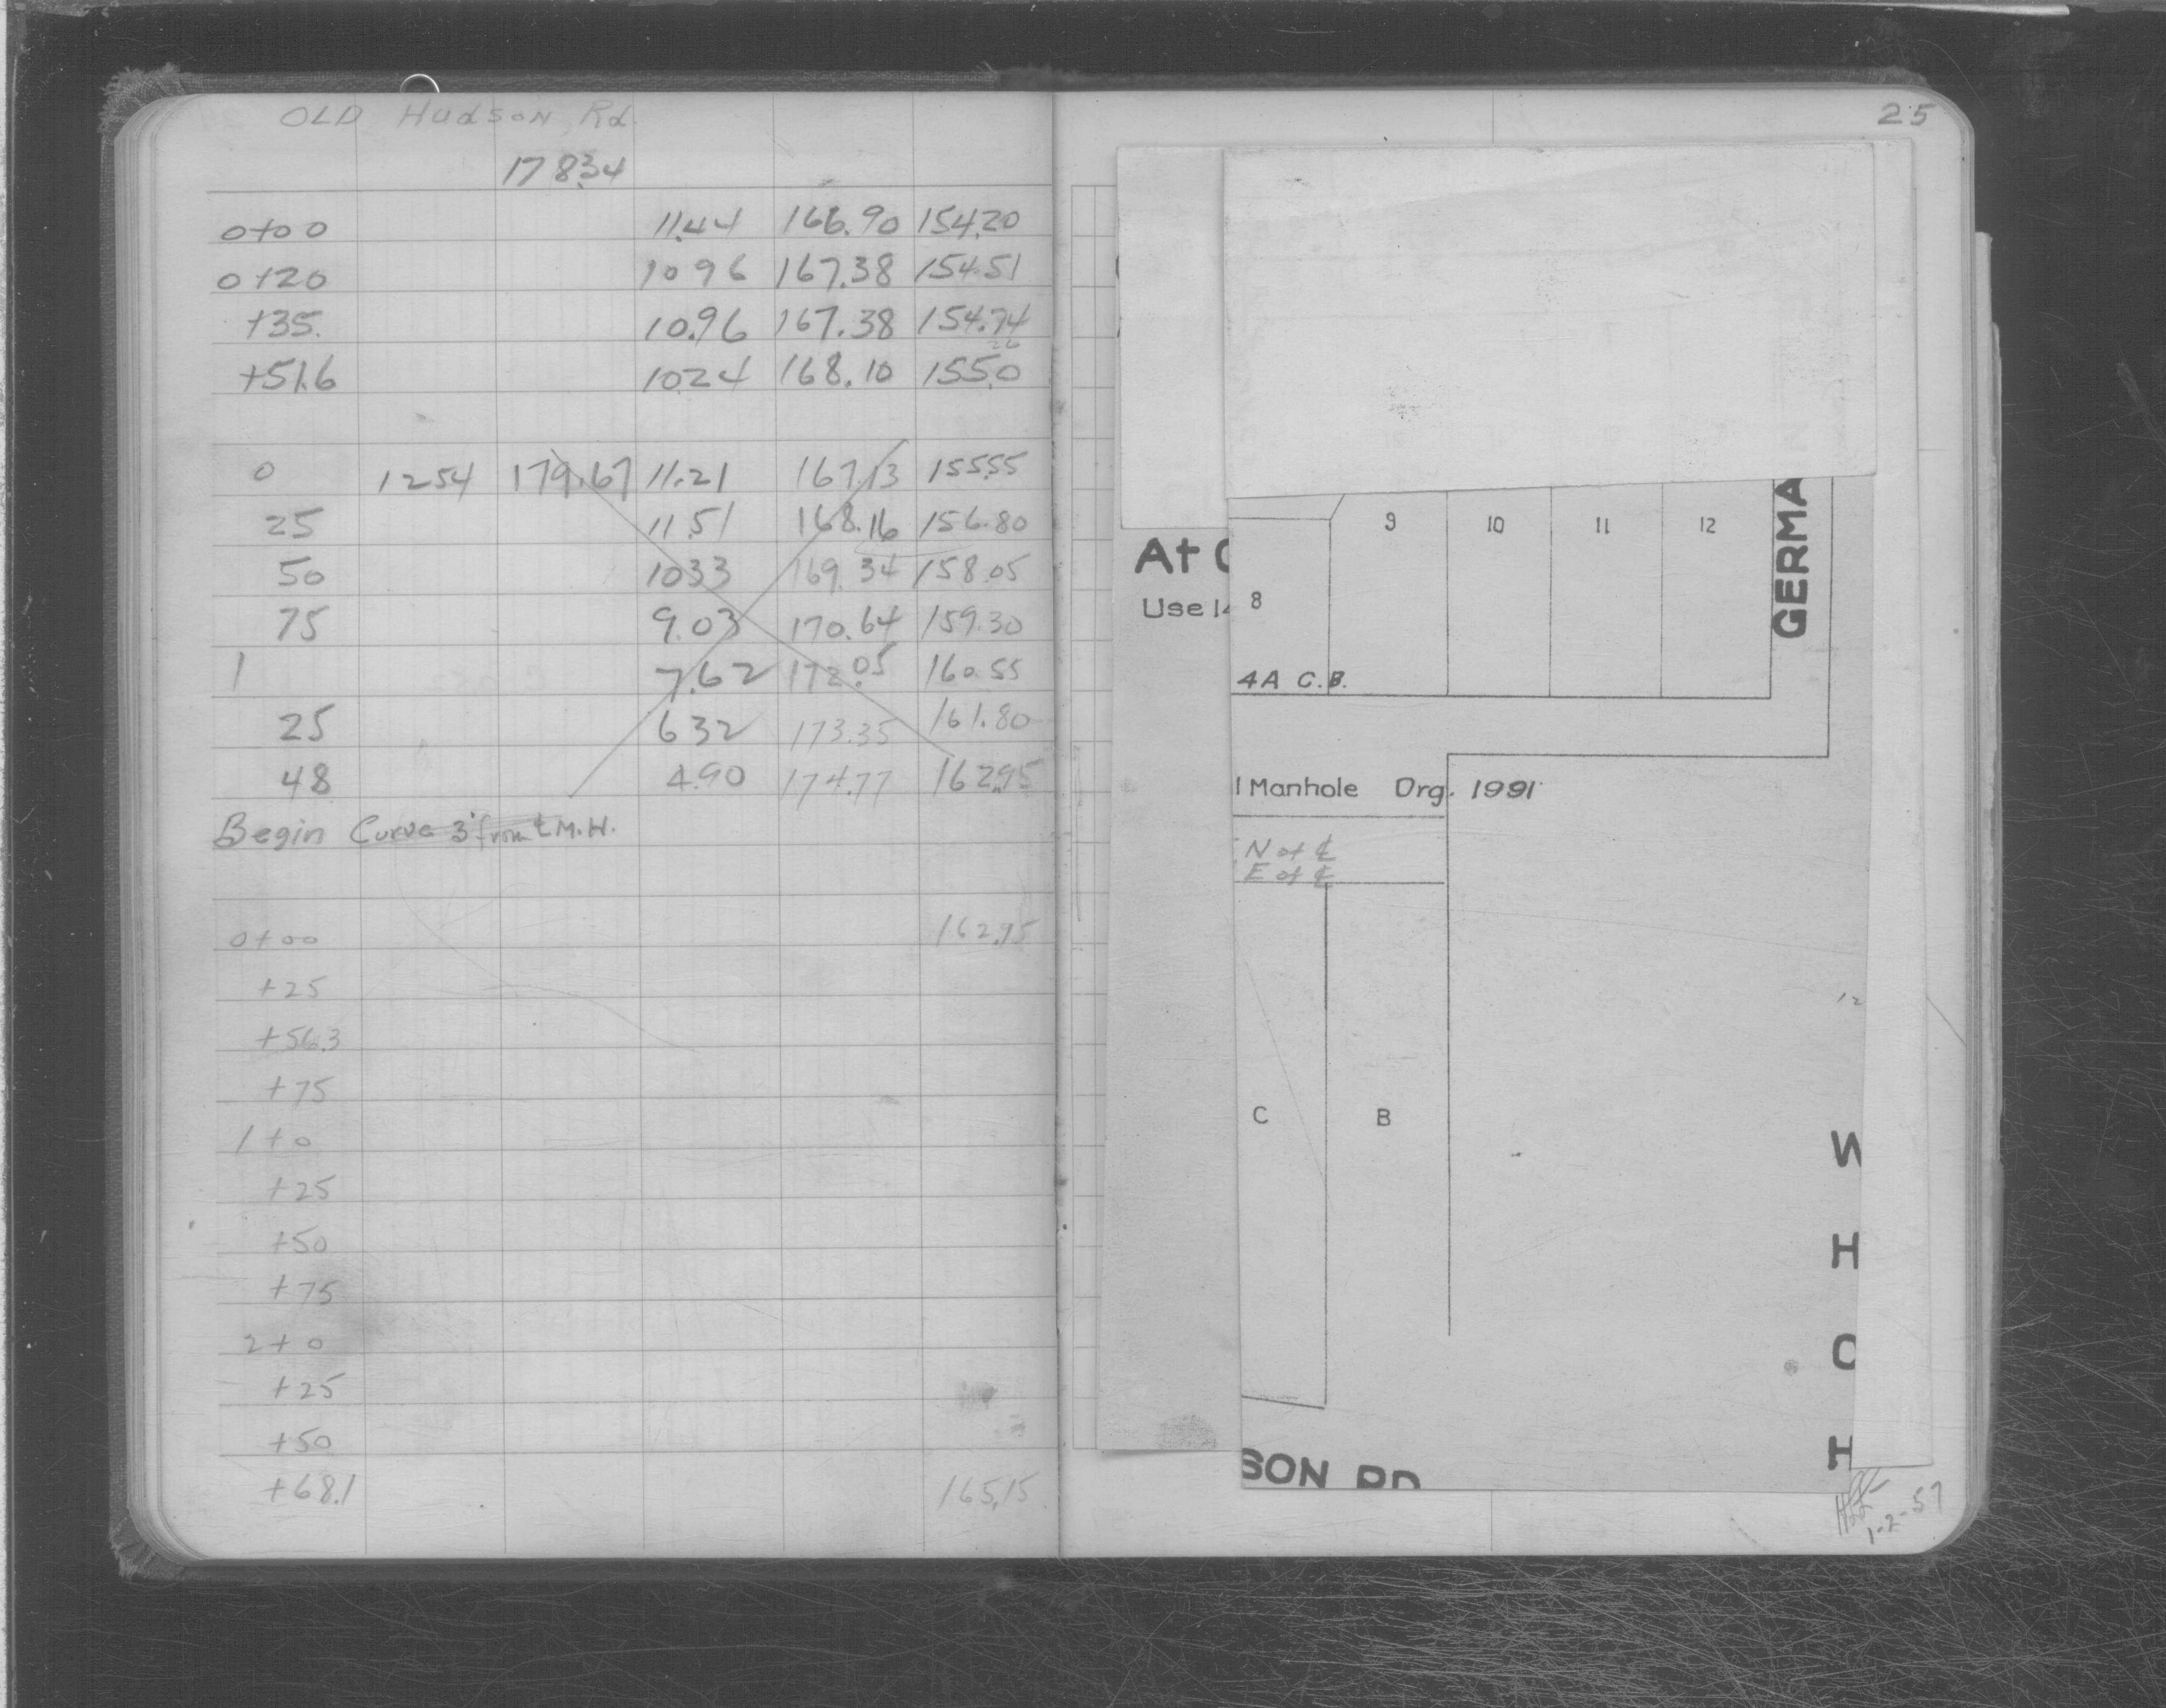 OLD Hudson Rd.
178.34
0+00 11.44 166.90 154.20
0+20 10 96 167.38 154.51
+35. 10.96 167.38 154.74
26
+51.6 10.24 168.10 155.0
0 12 54 179.67 11.21 167.13 155.55
25 11.51 168.16 156.80
50 10 33 169.34 158.05
75 9.03 170.64 159.30
1 7.62 172.05 160.55
25 6 32 173.35 161.80
48 4.90 174.77 162.95
Begin Curve 3' from ℄ M.H.
0+00 162.95
+25
+56.3
+75
1+0
+25
+50
+75
2+0
+25
+50
+68.1 165.15
25
At
Use 14
8
9
10
11
12
GERMA
4A C.B.
Manhole Drg. 1991
N of ℄
E of ℄
C
B
12
W
H
O
H
SON RD
1-2-57